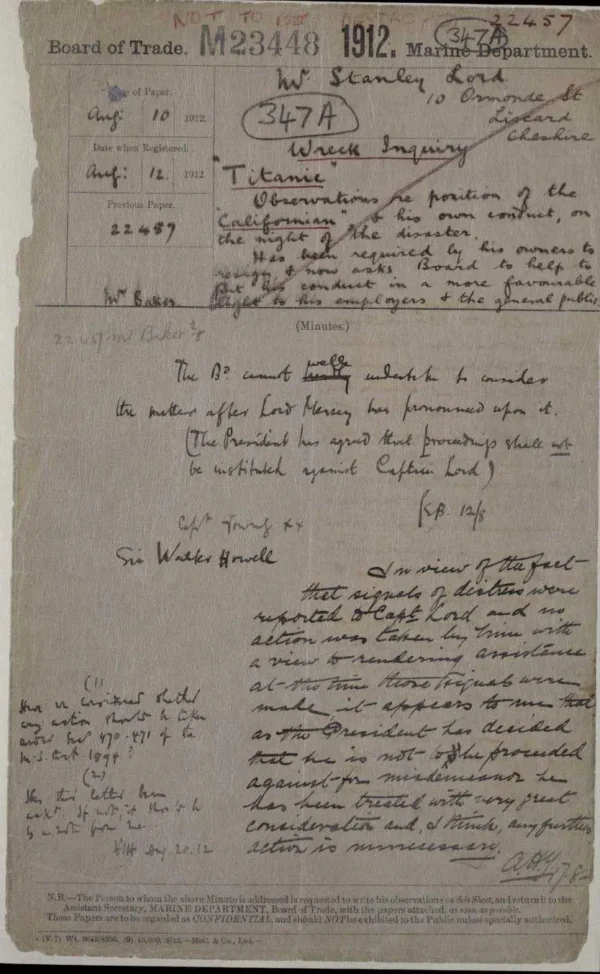 NOT TO BE DESTROYED
22457
Board of Trade. M23448 1912. 347A Marine Department.
Date of Paper.
Aug: 10 1912.
Date when Registered.
Aug: 12. 1912
Previous Paper.
22457
Mr Baker
Mr Stanley Lord
10 Ormonde St
Liscard
Cheshire
347A
Wreck Inquiry
"Titanic"
Observations re position of the
"Californian" & his own conduct, on
the night of the disaster.
Has been required by his owners to
resign & now asks Board to help to
put his conduct in a more favourable
light to his employers & the general public.
(Minutes.)
22457 Mr Baker
The Bd cannot well undertake to consider
the matter after Lord Mersey has pronounced upon it.
(The President has agreed that proceedings shall not
be instituted against Captain Lord)
12/8
Capt Young
Sir Walter Howell
In view of the fact
that signals of distress were
reported to Capt Lord and no
action was taken by him with
a view to rendering assistance
at the time those signals were
made it appears to me that
as the President has decided
that he is not to be proceeded
against for misdemeanor he
has been treated with very great
consideration and, I think, any further
action is unnecessary.
AHY 17.8
(1)
Have we considered whether
any action should be taken
under Sec 470-471 of the
M.S. Act 1894?
(2)
Has this letter been
ackd. If not, it should be
by a note from me.
Aug. 20. 12
N.B.—The Person to whom the above Minute is addressed is requested to write his observations on this Sheet, and return it to the
Assistant Secretary, MARINE DEPARTMENT, Board of Trade, with the papers attached, as soon as possible.
These Papers are to be regarded as CONFIDENTIAL, and should NOT be exhibited to the Public unless specially authorized.